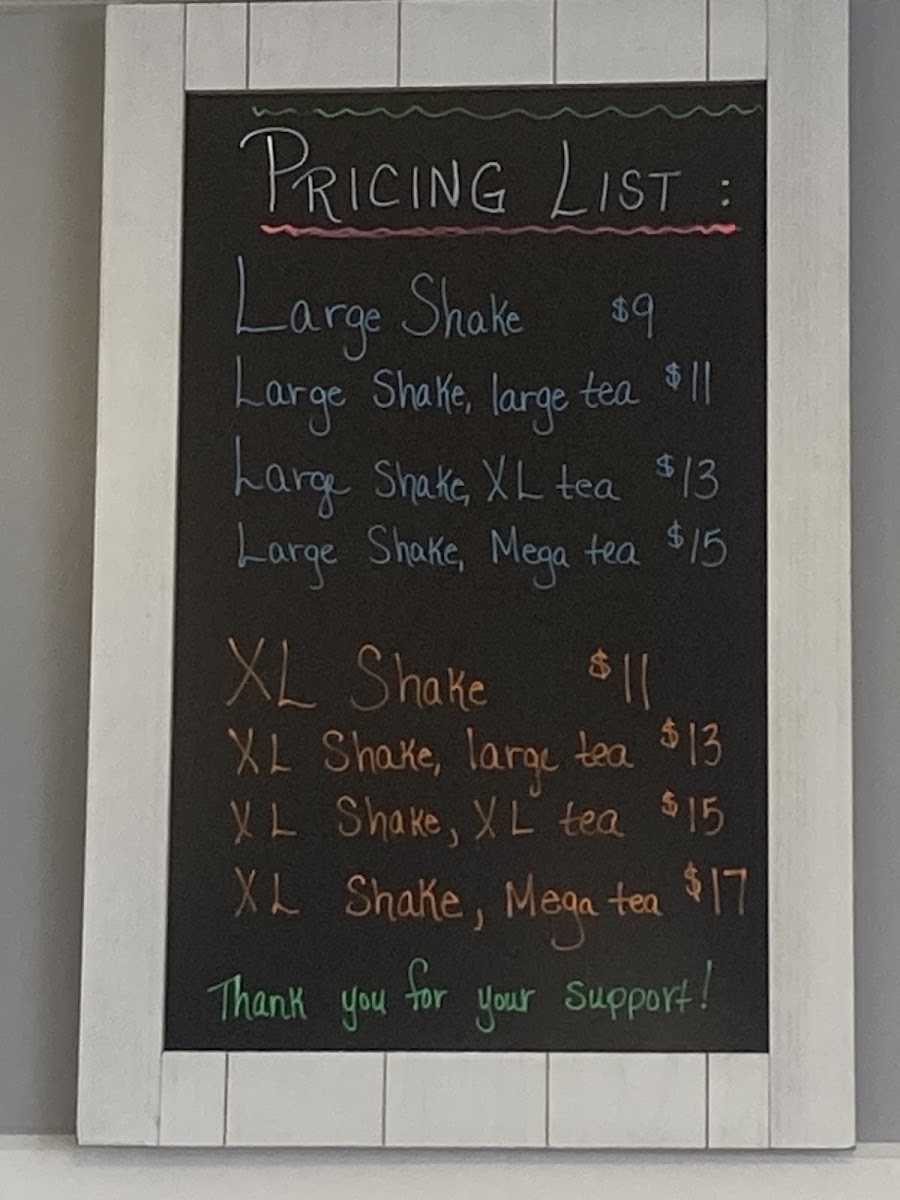 PRICING LIST :
Large Shake $9
Large Shake, large tea $11
Large Shake, XL tea $13
Large Shake, Mega tea $15
XL Shake $11
XL Shake, large tea $13
XL Shake, XL tea $15
XL Shake, Mega tea $17
Thank you for your support!